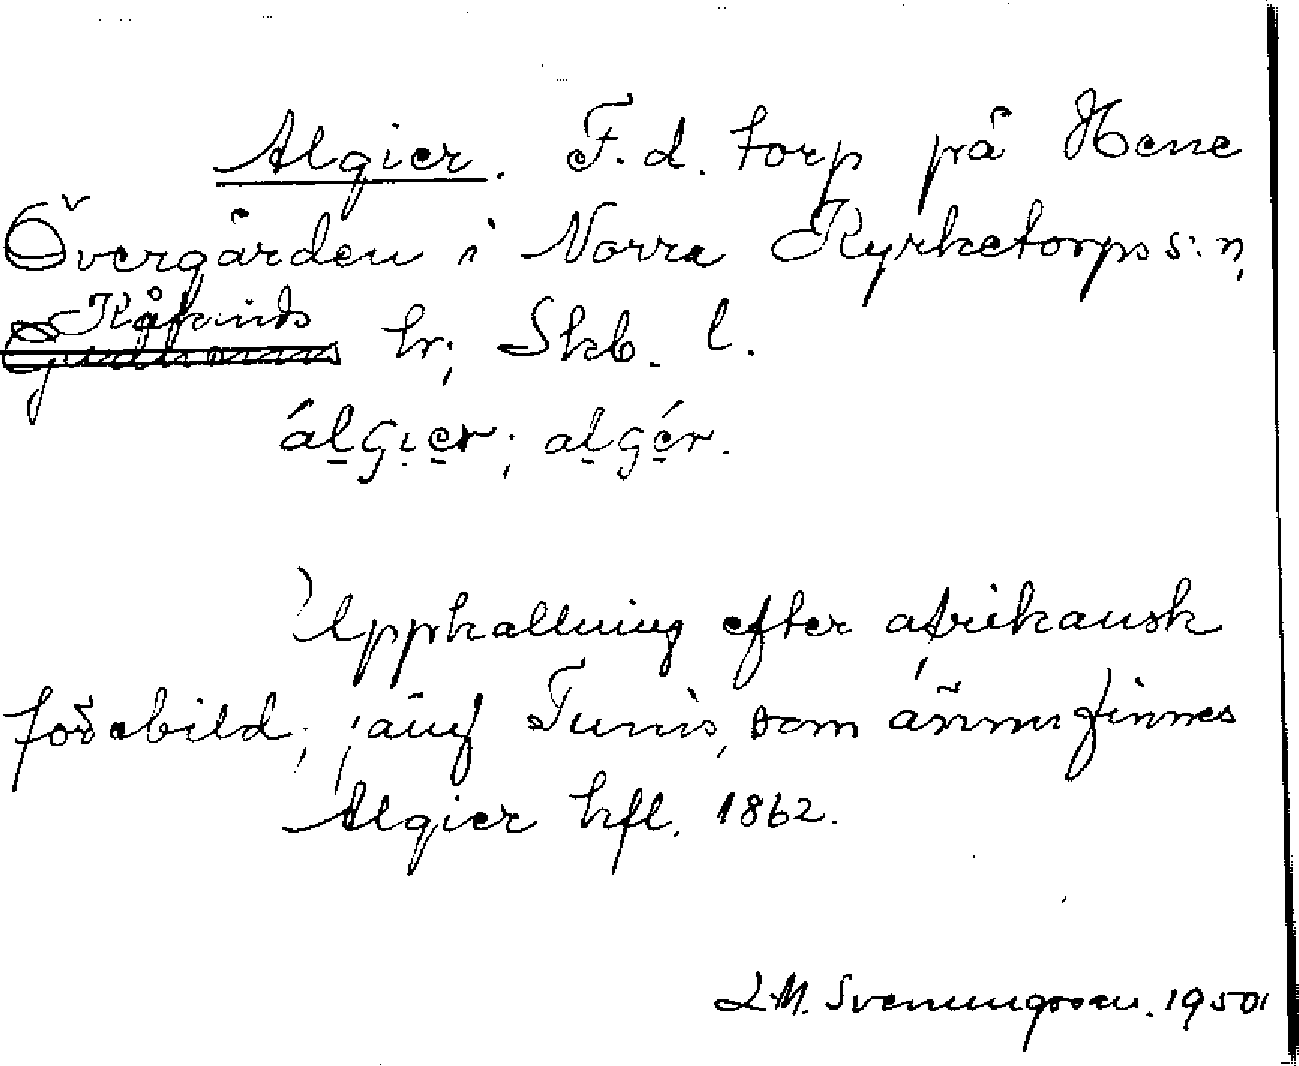 Algier. F.d. torp på Hene
Övergården i Norra Kyrketorps s:n,
Kåkinds
hr; Skb. l.
álgier; algér.
Uppkallning efter afrikansk
förebild; jämf Tunis, som ännu finnes
Algier hfl. 1862.
L.M. Svenungsson. 1950